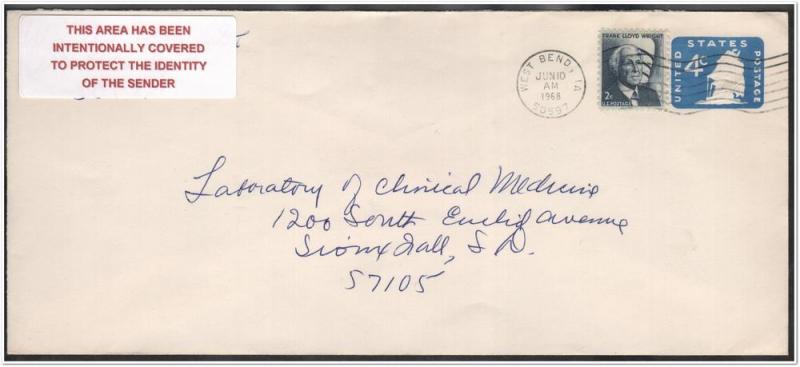 THIS AREA HAS BEEN
INTENTIONALLY COVERED
TO PROTECT THE IDENTITY
OF THE SENDER
WEST BEND, IA
JUN 10
AM
1968
50597
FRANK LLOYD WRIGHT
2¢
U.S. POSTAGE
UNITED STATES POSTAGE
4¢
Laboratory of Clinical Medicine
1200 South Euclid Avenue
Sioux Fall, S D.
57105